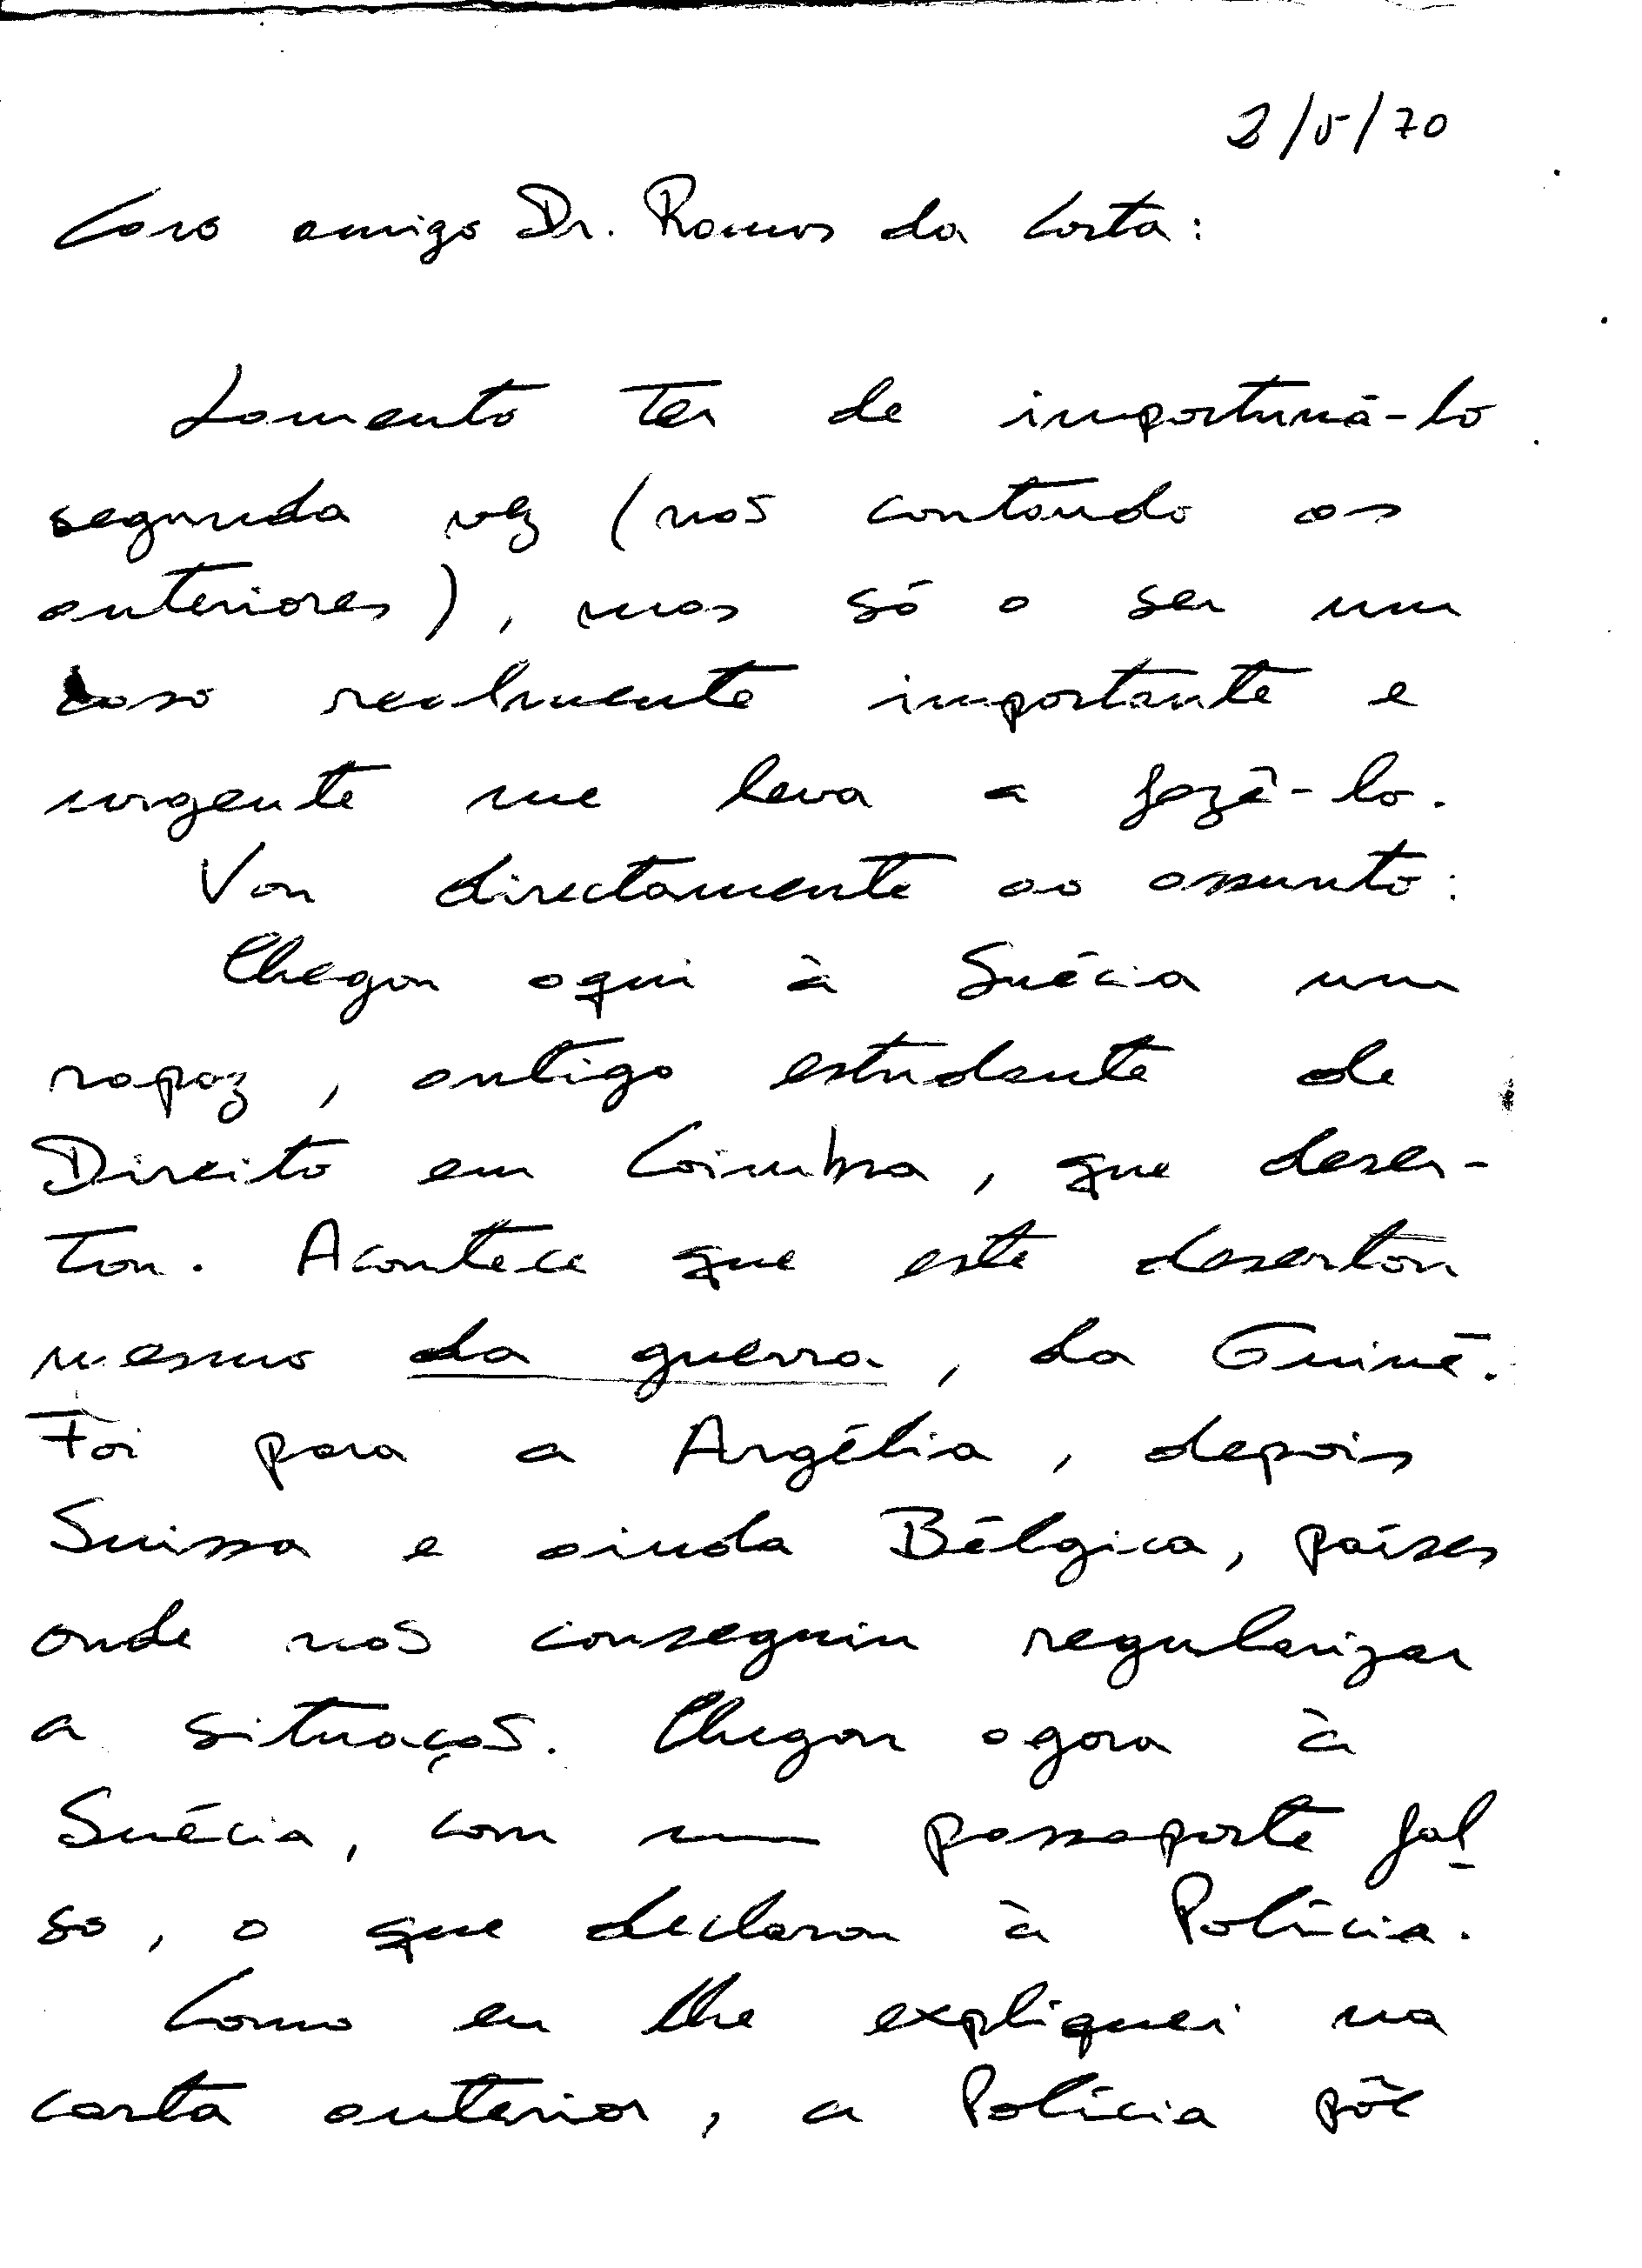 2/5/70
Caro amigo Dr. Ramos da Costa:
Lamento ter de importuná-lo
segunda vez (não contando as
anteriores), mas só o ser um
caso realmente importante e
urgente me leva a fazê-lo.
Vou directamente ao assunto:
Chegou aqui à Suécia um
rapaz, antigo estudante de
Direito em Coimbra, que deser-
tou. Acontece que este desertou
mesmo da guerra, da Guiné.
Foi para a Argélia, depois
Suissa e ainda Bélgica, países
onde não conseguiu regularizar
a situação. Chegou agora à
Suécia, com um passaporte fal-
so, o que declarou à Polícia.
Como eu lhe expliquei na
carta anterior, a Polícia põe